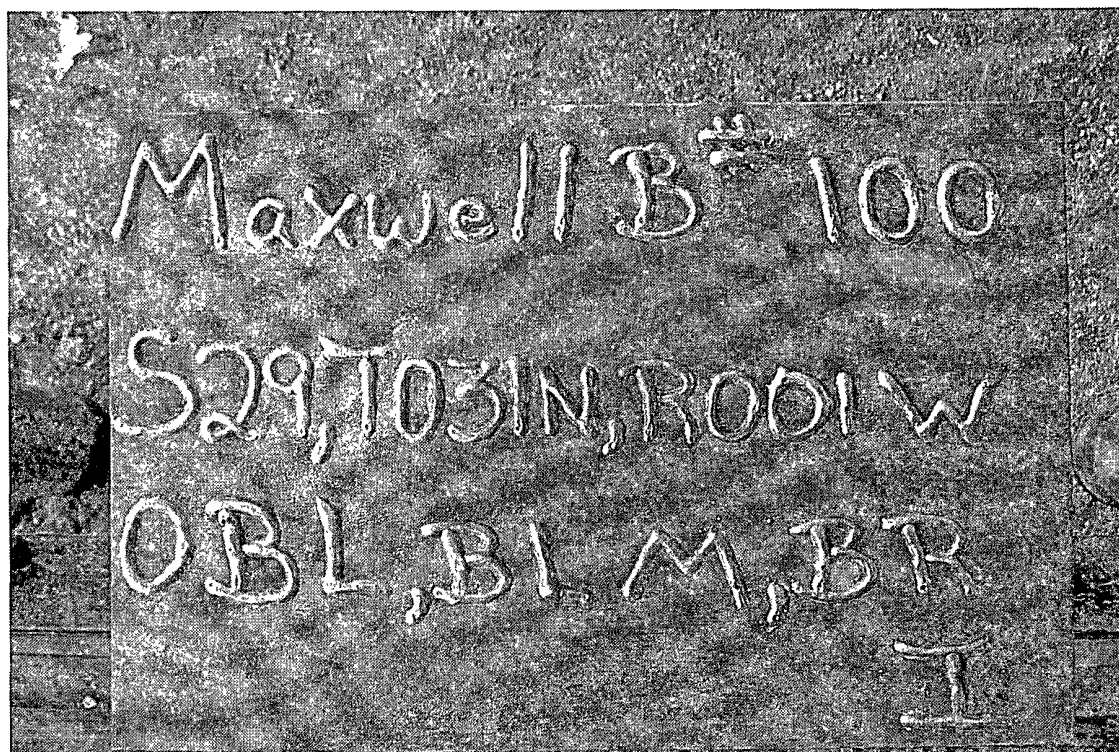 Maxwell B # 100
S29,T031N,R001W
OBL,BLM,BR
I